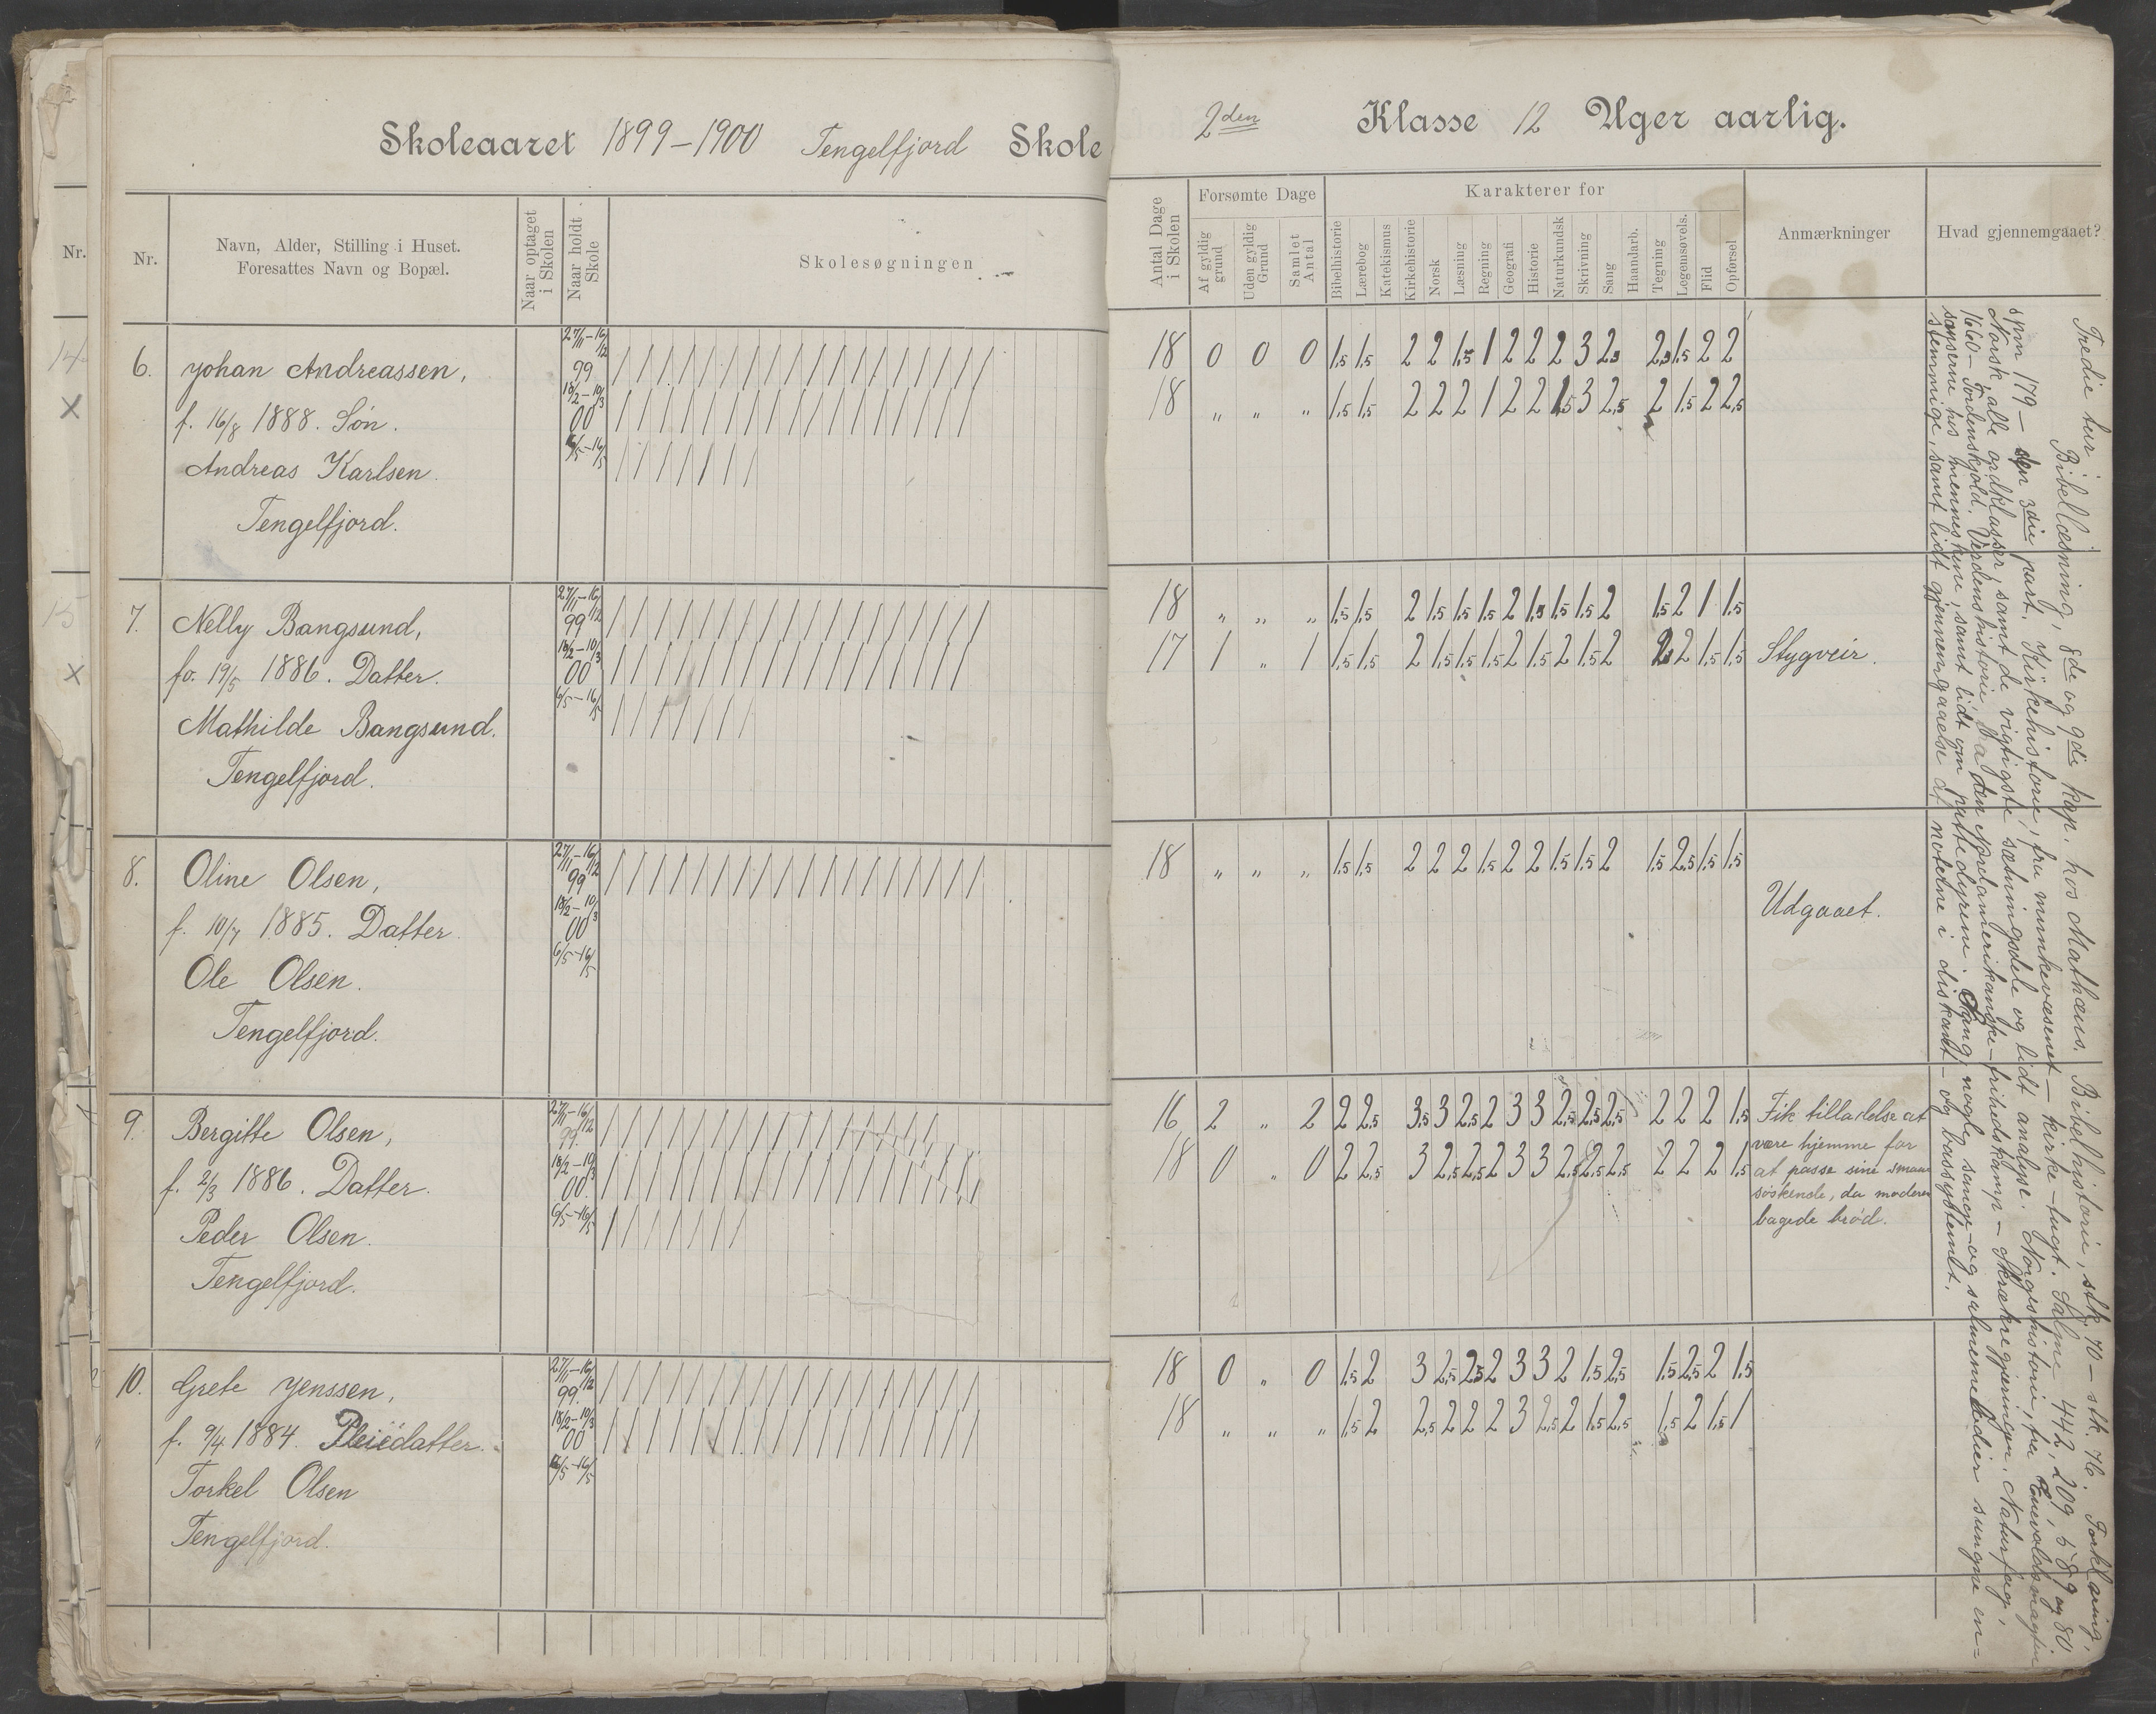 Skoleaaret 1899–1900 Tengelfjord Skole
2den Klasse 12 Uger aarlig.
Nr.
Nr.
Navn, Alder, Stilling i Huset.
Foresattes Navn og Bopæl.
Naar optaget i Skolen
Naar holdt Skole
Skolesøgningen
Antal Dage i Skolen
Forsømte Dage
Af gyldig grund
Uden gyldig Grund
Samlet Antal
Karakterer for
Bibelhistorie
Lærebog
Katekismus
Kirkehistorie
Norsk
Læsning
Regning
Geografi
Historie
Naturkundsk
Skrivning
Sang
Haandarb.
Tegning
Legemsøvels.
Flid
Opførsel
Anmærkninger
Hvad gjennemgaaet?
14
15
6. Johan Andreassen,
f. 16/8 1888. Søn.
Andreas Karlsen.
Tengelfjord.
27/11–16/12 99
18/2–10/3 00
6/5–16/5
18 0 0 0 1,5 1,5 2 2 1,5 1 2 2 2 3 2,5 2,5 1,5 2 2
18 „ „ „ 1,5 1,5 2 2 2 1 2 2 1,5 3 2,5 2 1,5 2 2,5
7. Nelly Bangsund,
fø. 19/5 1886. Datter.
Mathilde Bangsund.
Tengelfjord.
27/11–16/12 99
18/2–10/3 00
6/5–16/5
18 „ „ „ 1,5 1,5 2 1,5 1,5 1,5 2 1,5 1,5 1,5 2 1,5 2 1 1,5
17 1 „ 1 1,5 1,5 2 1,5 1,5 1,5 2 1,5 2 1,5 2 2 2 1,5 1,5 Stygveir.
8. Oline Olsen,
f. 10/7 1885. Datter.
Ole Olsen.
Tengelfjord.
27/11–16/12 99
18/2–10/3 00
6/5–16/5
18 „ „ „ 1,5 1,5 2 2 2 1,5 2 2 1,5 1,5 2 1,5 2,5 1,5 1,5
Udgaaet.
9. Bergitte Olsen,
f. 2/3 1886. Datter.
Peder Olsen.
Tengelfjord.
27/11–16/12 99.
18/2–10/3 00.
6/5–16/5
16 2 „ 2 2 2,5 3,5 3 2,5 2 3 3 2,5 2,5 2,5 2 2 2 1,5
18 0 „ 0 2 2,5 3 2,5 2,5 2 3 3 2,5 2,5 2,5 2 2 2 1,5
Fik tilladelse at
være hjemme for
at passe sine smaa
søskende, da moderen
bagede brød.
10. Grete Jenssen,
f. 9/4 1884. Pleiedatter.
Torkel Olsen
Tengelfjord.
27/11–16/12 99.
18/2–10/3 00
6/5–16/5
18 0 „ 0 1,5 2 3 2,5 2,5 2 3 3 2 1,5 2,5 1,5 2,5 2 1,5
18 „ „ „ 1,5 2 2,5 2 2 2 3 2,5 2 1,5 2,5 1,5 2 1,5 1
Tredie tur
Bibellæsning, 8de og 9de kap. hos Mathæus. Bibelhistorie, stk. 70 – stk. 76. Forklaring,
spm 179 – den 3die part. Kirkehistorie, fra munkevæsenet – kirke-tugt. Salme 442, 209, 589 og 80.
Norsk, alle ordklasser samt de vigtigste sætningsdele og lidt analyse. Norgeshistorie, fra Enevoldsmagten
1660 – Tordenskjold. Verdenshistorie, fra den nordamerikanske frihedskamp – Skrækregjeringen. Naturfag,
sanserne hos menneskene, samt lidt om pattedyrene. Sang, nogle sange- og salmemelodier sungne en-
stemmige, samt lidt gjennemgaaelse af noterne i diskant- og bassystemet.